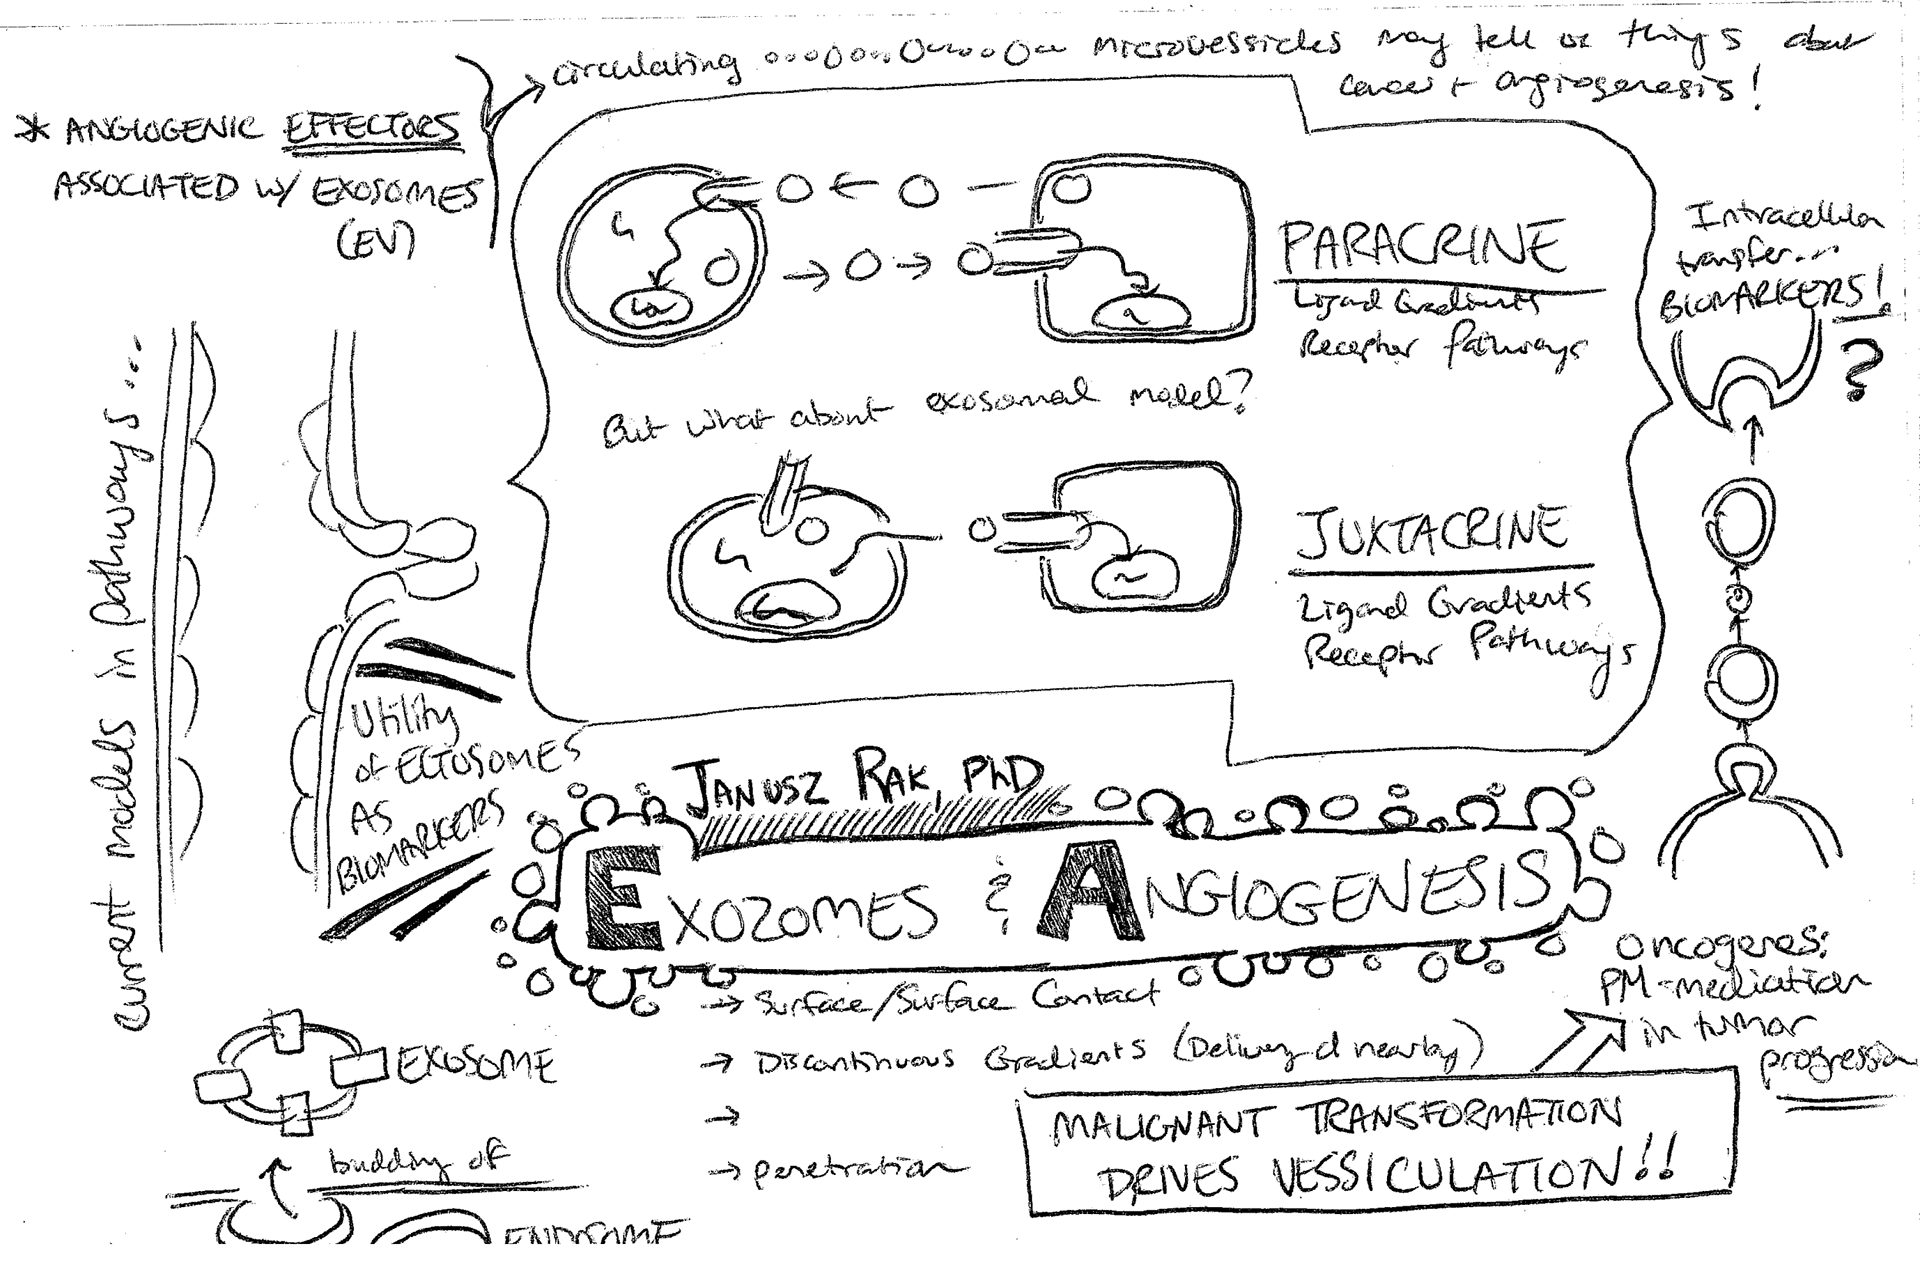 circulating microvessicles may tell us things about
cancer + angiogenesis!
* ANGIOGENIC EFFECTORS
ASSOCIATED w/ EXOSOMES
(EV)
PARACRINE
Ligand Gradients
Receptor Pathways
Intracellular
transfer...
BIOMARKERS!
?
But what about exosomal model?
JUXTACRINE
Ligand Gradients
Receptor Pathways
current models in pathways...
Utility
of ECTOSOMES
AS
BIOMARKERS
JANUSZ RAK, PhD
EXOZOMES & ANGIOGENESIS
→ Surface/Surface Contact
→ Discontinuous Gradients (Delivery nearby)
→
→ penetration
oncogenes:
PM-mediation
in tumor
progression
MALIGNANT TRANSFORMATION
DRIVES VESSICULATION!!
EXOSOME
budding of
ENDOSOME